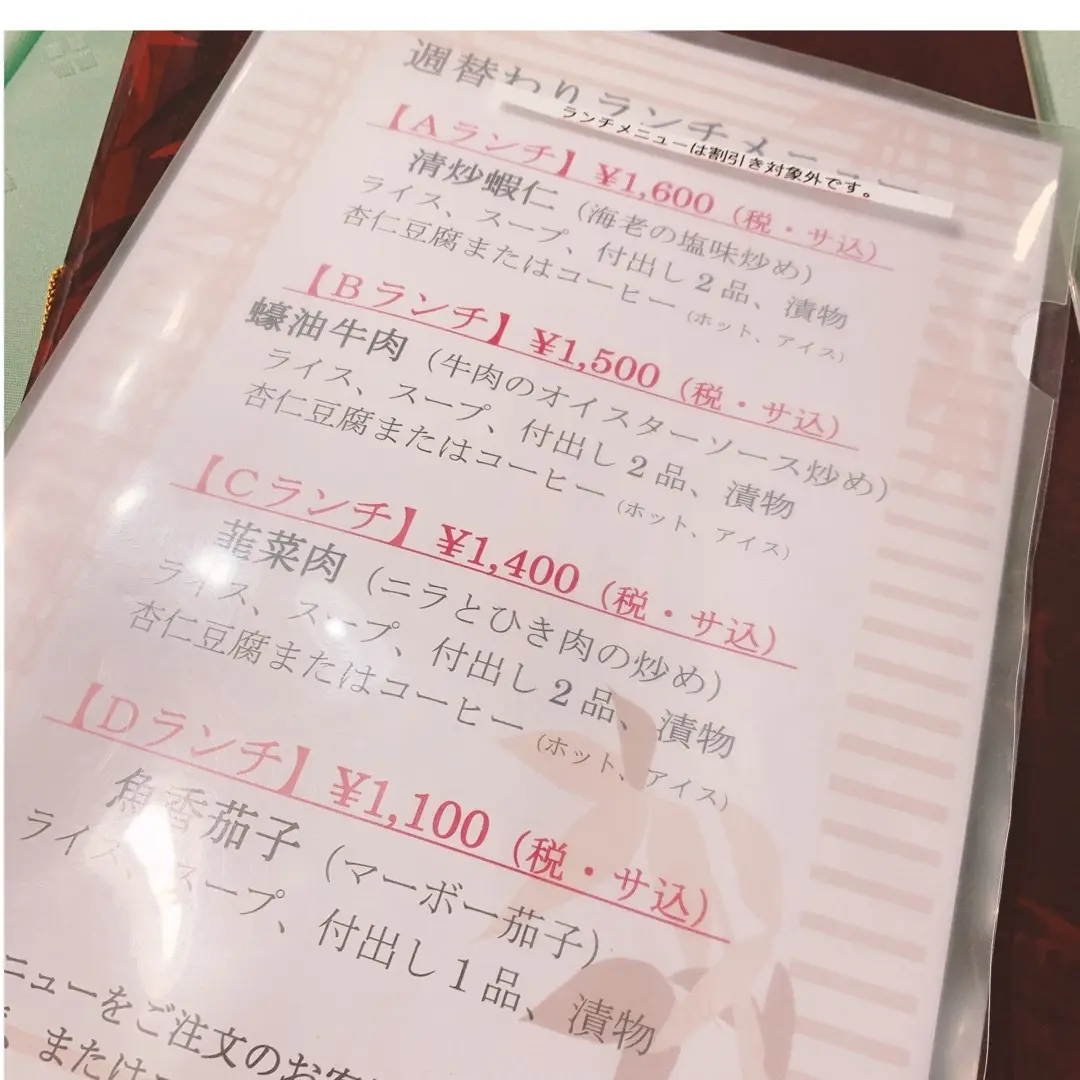 週替わりランチメニュー
ランチメニューは割引き対象外です。
【Aランチ】¥1,600(税・サ込)
清炒蝦仁(海老の塩味炒め)
ライス、スープ、付出し2品、漬物
杏仁豆腐またはコーヒー(ホット、アイス)
【Bランチ】¥1,500(税・サ込)
蠔油牛肉(牛肉のオイスターソース炒め)
ライス、スープ、付出し2品、漬物
杏仁豆腐またはコーヒー(ホット、アイス)
【Cランチ】¥1,400(税・サ込)
韮菜肉(ニラとひき肉の炒め)
ライス、スープ、付出し2品、漬物
杏仁豆腐またはコーヒー(ホット、アイス)
【Dランチ】¥1,100(税・サ込)
魚香茄子(マーボー茄子)
ライス、スープ、付出し1品、漬物
ニューをご注文のお客
、または